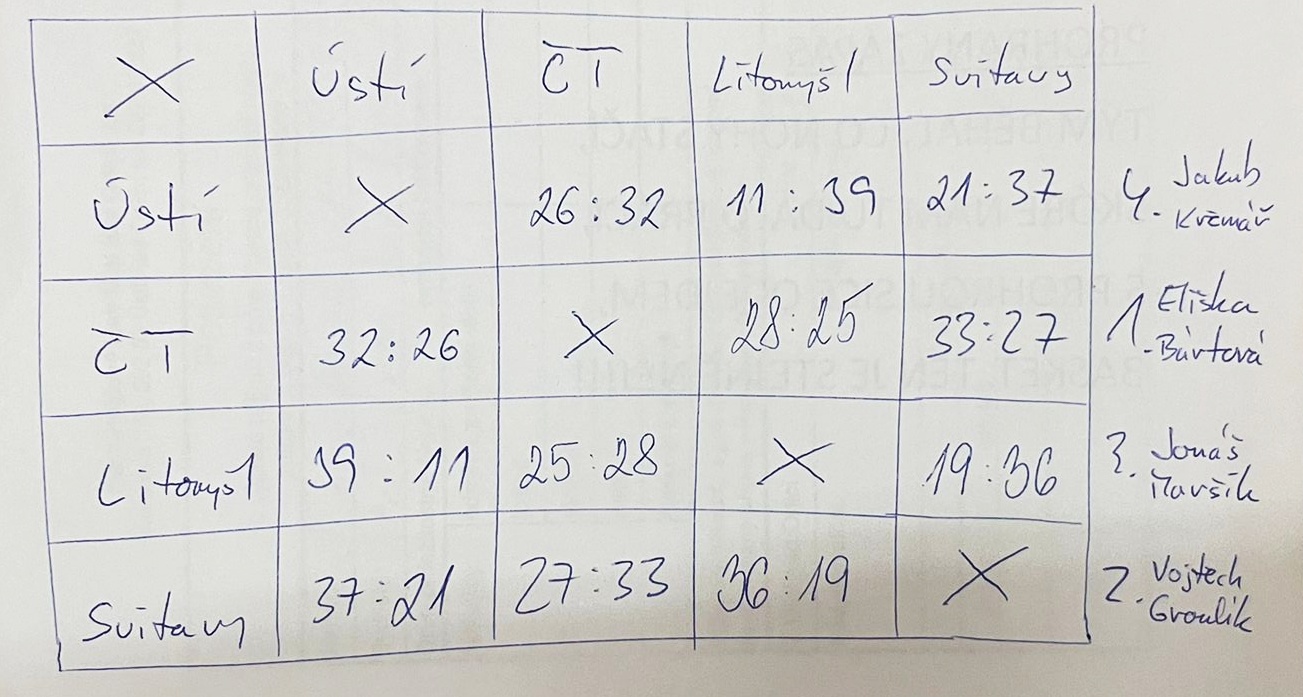 X Ústí ČT Litomyšl Svitavy
Ústí X 26:32 11:39 21:37 4. Jakub
Krčmář
ČT 32:26 X 28:25 33:27 1. Eliška
Bártová
Litomyšl 39:11 25:28 X 19:36 3. Jonáš
Svitavy 37:21 27:33 36:19 X 2. Vojtech